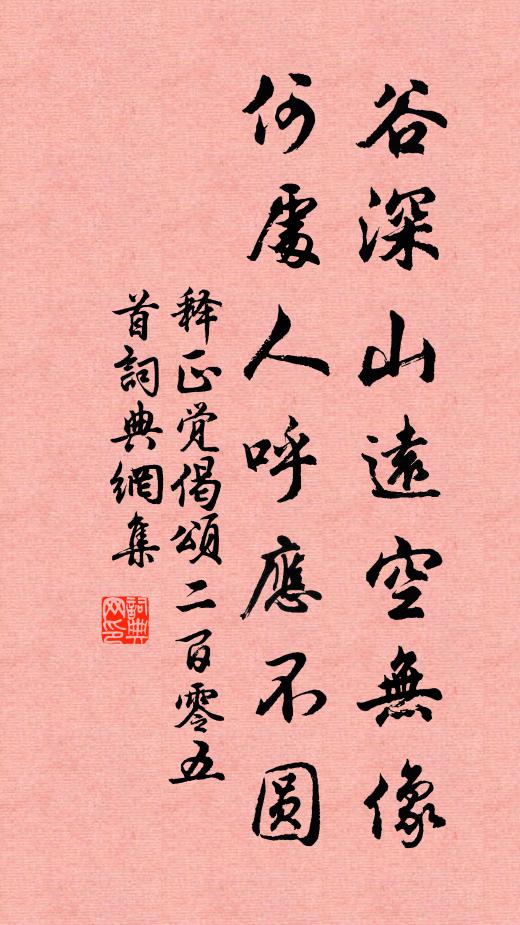 谷深山遠空無像
何處人呼應不圆
释正觉偈頌二百零五
首詞典網集
詞典网印